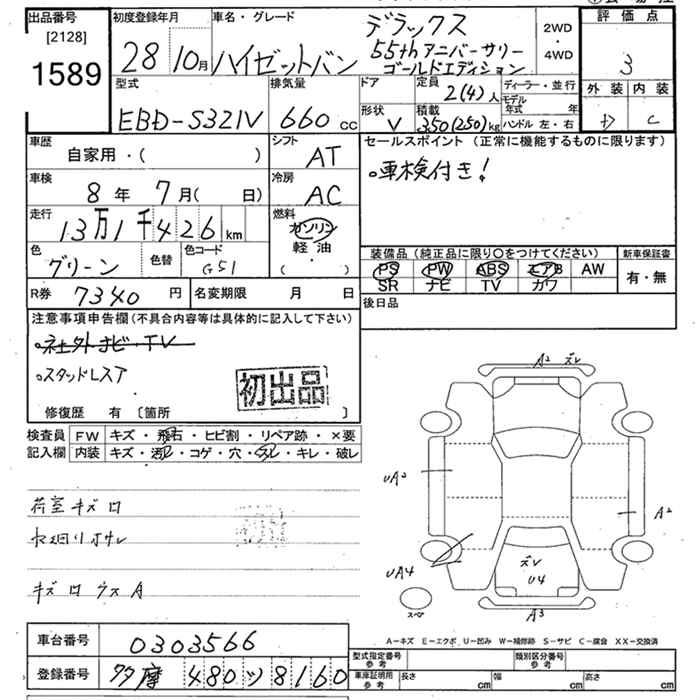 出品番号
[2128]
1589
初度登録年月
28 10月
車名・グレード
ハイゼットバン
デラックス
55thアニバーサリー
ゴールドエディション
2WD
・
4WD
評価点
3
外装 内装
D C
型式
EBD-S321V
排気量
660 cc
ドア
形状
V
定員
2(4)人
積載
350(250)kg
ディーラー・並行
モデル年式 年
ハンドル 左・右
車歴
自家用・( )
シフト
AT
車検
8年 7月( 日)
冷房
AC
走行
13万1千426km
燃料
ガソリン
軽油
( )
色
グリーン
色替
色コード
G51
R券 7340円
名変期限 月 日
セールスポイント (正常に機能するものに限ります)
。車検付き!
装備品 (純正品に限り○をつけてください)
PS PW ABS エアB AW
SR ナビ TV カワ
新車保証書
有・無
後日品
注意事項申告欄(不具合内容等は具体的に記入して下さい)
。社外ナビ・TV
。スタッドレスT
初出品
修復歴 有 〔箇所 〕
検査員
記入欄
FW キズ・飛石・ヒビ割・リペア跡・×要
内装 キズ・汚レ・コゲ・穴・スレ・キレ・破レ
荷室キズロ
キズロウスA
A2 ズレ
UA2
A2
UA4
ズレ
U4
A3
スペア
A-キズ E-エクボ U-凹み W-補修跡 S-サビ C-腐食 XX-交換済
車台番号 0303566
登録番号 多摩 480 ツ 8160
型式指定番号
参考
類別区分番号
参考
車庫証明用
参考
長さ cm
幅 cm
高さ cm